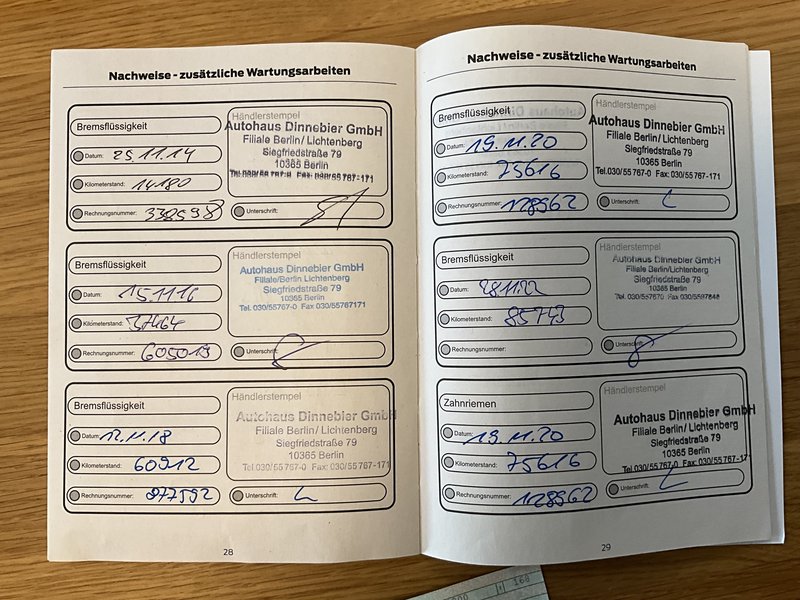 Nachweise - zusätzliche Wartungsarbeiten
Bremsflüssigkeit
Datum: 25.11.14
Kilometerstand: 14180
Rechnungsnummer: 338598
Händlerstempel
Autohaus Dinnebier GmbH
Filiale Berlin/ Lichtenberg
Siegfriedstraße 79
10365 Berlin
Tel.030/55 767-0 Fax 030/55 767-171
Unterschrift:
Bremsflüssigkeit
Datum: 15.11.16
Kilometerstand: 37464
Rechnungsnummer: 605013
Händlerstempel
Autohaus Dinnebier GmbH
Filiale/Berlin Lichtenberg
Siegfriedstraße 79
10365 Berlin
Tel. 030/55767-0 Fax 030/55767171
Unterschrift:
Bremsflüssigkeit
Datum: 12.11.18
Kilometerstand: 60912
Rechnungsnummer: 877592
Händlerstempel
Autohaus Dinnebier GmbH
Filiale Berlin/ Lichtenberg
Siegfriedstraße 79
10365 Berlin
Tel.030/55 767-0 Fax: 030/55 767-171
Unterschrift:
28
Nachweise - zusätzliche Wartungsarbeiten
Bremsflüssigkeit
Datum: 19.11.20
Kilometerstand: 75616
Rechnungsnummer: 128962
Händlerstempel
Autohaus Dinnebier GmbH
Filiale Berlin/ Lichtenberg
Siegfriedstraße 79
10365 Berlin
Tel.030/55 767-0 Fax: 030/55 767-171
Unterschrift:
Bremsflüssigkeit
Datum: 28.11.22
Kilometerstand: 85743
Rechnungsnummer:
Händlerstempel
Autohaus Dinnebier GmbH
Filiale/Berlin Lichtenberg
Siegfriedstraße 79
10365 Berlin
Unterschrift:
Zahnriemen
Datum: 19.11.20
Kilometerstand: 75616
Rechnungsnummer: 128962
Händlerstempel
Autohaus Dinnebier GmbH
Filiale Berlin/ Lichtenberg
Siegfriedstraße 79
10365 Berlin
Tel.030/55 767-0 Fax: 030/55 767-171
Unterschrift:
29